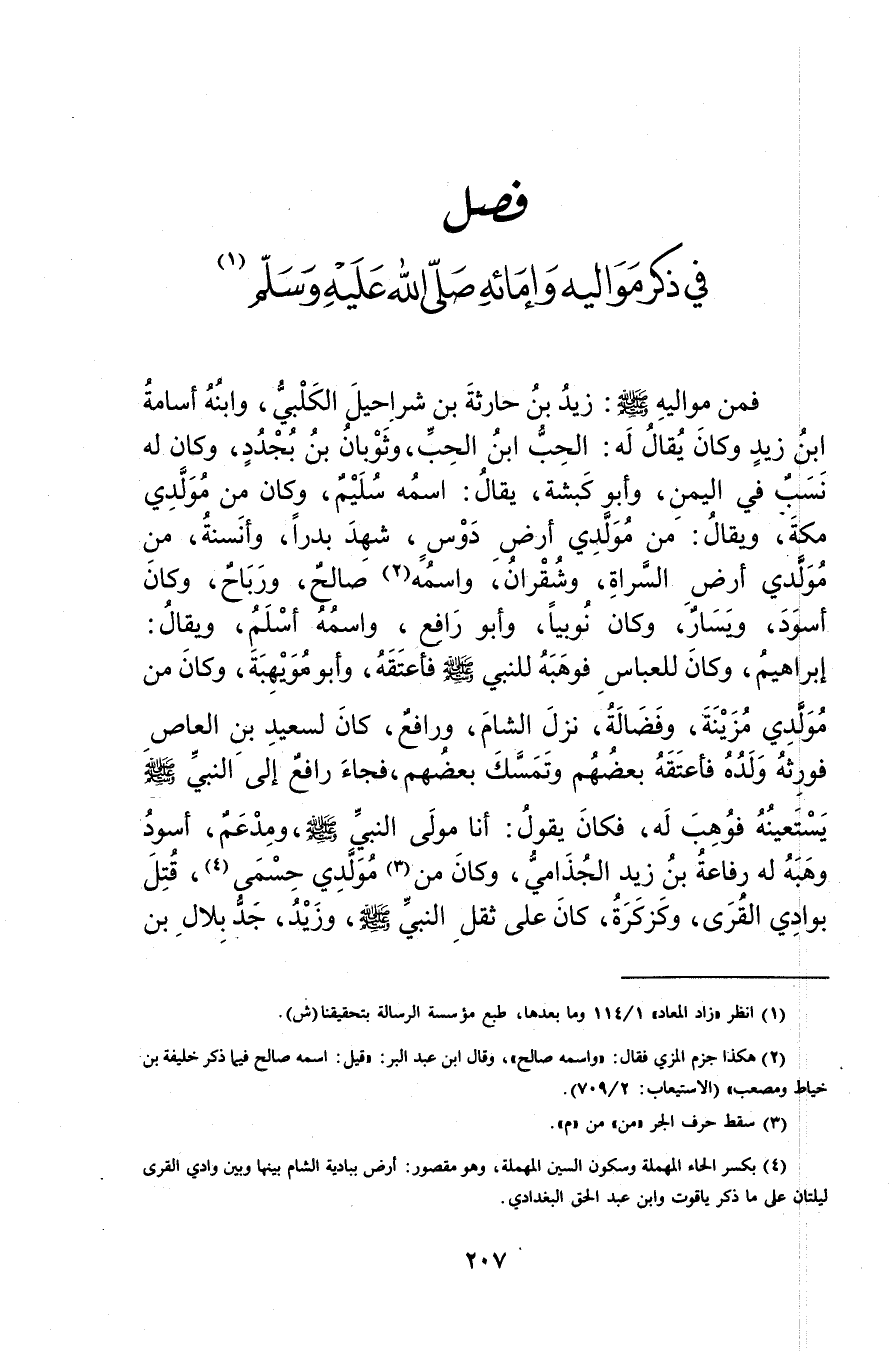 فصل
في ذكر مَوَاليه وَإمَائهِ صَلّى اللّه عَلَيْهِ وَسَلّم (١)
فمن مواليهِ ﷺ: زيدُ بنُ حارثةَ بن شراحيلَ الكَلْبيُّ، وابنُهُ أسامةُ
ابنُ زيدٍ وكانَ يُقالُ لَه: الحِبُّ ابنُ الحِبِّ، وثَوْبانُ بنُ بُجْدُدٍ، وكان له
نَسَبٌ في اليمنِ، وأبو كَبشة، يقالُ: اسمُه سُلَيْمٌ، وكان من مُوَلَّدي
مكةَ، ويقالُ: من مُوَلَّدِي أرضِ دَوْسٍ، شهِدَ بدراً، وأنَسنةُ، من
مُوَلَّدي أرضِ السَّراةِ، وشُقْرانُ، واسمُه(٢) صالحٌ، ورَبَاحٌ، وكانَ
أسوَدَ، ويَسَارٌ، وكان نُوبياً، وأبو رَافِعٍ، واسمُهُ أسْلَمُ، ويقالُ:
إبراهيمُ، وكانَ للعباسِ فوهَبَهُ للنبي ﷺ فأعتَقَهُ، وأبو مُوَيْهِبَةَ، وكانَ من
مُوَلَّدِي مُزَيْنَةَ، وفَضَالَةُ، نزلَ الشامَ، ورافعٌ، كانَ لسعيدِ بنِ العاصِ
فورِثهُ وَلَدُهُ فأعتَقَهُ بعضُهُم وتَمَسَّكَ بعضُهم، فجاءَ رافعٌ إلى النبيِّ ﷺ
يَسْتَعينُهُ فوُهِبَ لَه، فكانَ يقولُ: أنا مولَى النبيِّ ﷺ، ومِدْعَمٌ، أسودُ
وهَبَهُ له رِفاعةُ بنُ زيد الجُذَاميُّ، وكانَ من(٣) مُوَلَّدِي حِسْمَى(٤)، قُتِلَ
بوادِي القُرَى، وكَركَرَةُ، كانَ على ثقلِ النبيِّ ﷺ، وزَيْدٌ، جَدُّ بِلالِ بن
(١) انظر «زاد المعاد» ١١٤/١ وما بعدها، طبع مؤسسة الرسالة بتحقيقنا (ش).
(٢) هكذا جزم المزي فقال: «واسمه صالح»، وقال ابن عبد البر: «قيل: اسمه صالح فيما ذكر خليفة بن
خياط ومصعب» (الاستيعاب: ٧٠٩/٢).
(٣) سقط حرف الجر «من» من «م».
(٤) بكسر الحاء المهملة وسكون السين المهملة، وهو مقصور: أرض ببادية الشام بينها وبين وادي القرى
ليلتان على ما ذكر ياقوت وابن عبد الحق البغدادي.
٢٠٧